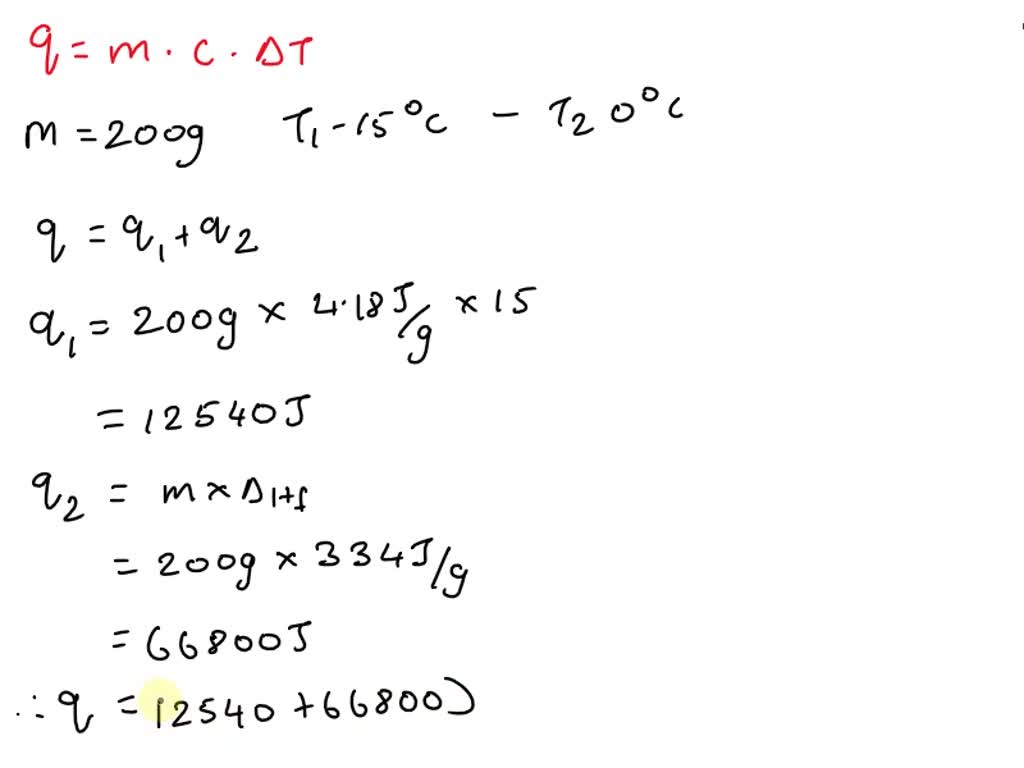 q = m · c · ΔT
m = 200g T₁ - 15°C - T₂ 0°C
q = q₁ + q₂
q₁ = 200g × 4.18 J/g × 15
= 12540J
q₂ = m × ΔHf
= 200g × 334J/g
= 66800J
∴ q = 12540 + 66800J